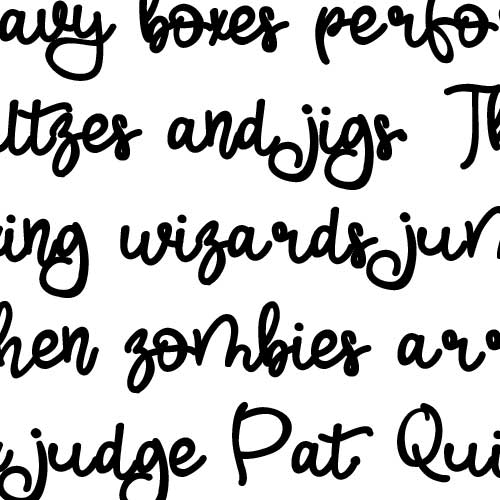 avy boxes perfo
ltzes and jigs Th
ing wizards jum
hen zombies arr
judge Pat Qui